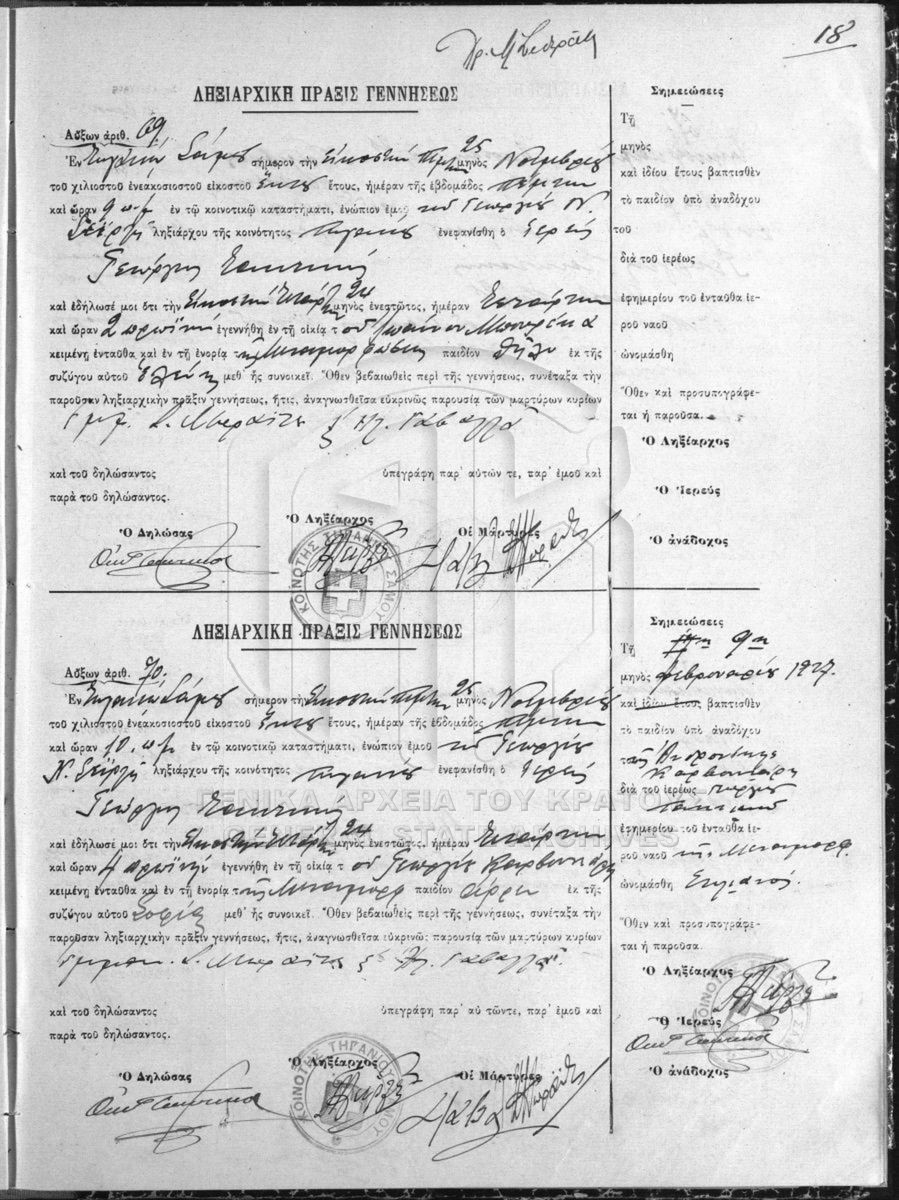 18
ΛΗΞΙΑΡΧΙΚΗ ΠΡΑΞΙΣ ΓΕΝΝΗΣΕΩΣ
Αὔξων ἀριθ. 69
Ἐν Τηγανίῳ Σάμου σήμερον τὴν εἰκοστὴν πέμπτην 25 μηνὸς Νοεμβρίου
τοῦ χιλιοστοῦ ἐνεακοσιοστοῦ εἰκοστοῦ ἕκτου ἔτους, ἡμέραν τῆς ἑβδομάδος Πέμπτην
καὶ ὥραν 9 π.μ. ἐν τῷ κοινοτικῷ καταστήματι, ἐνώπιον ἐμοῦ τοῦ Γεωργίου Ν.
ληξιάρχου τῆς κοινότητος Τηγανίου ἐνεφανίσθη ὁ ἱερεὺς
Γεώργιος
καὶ ἐδήλωσέ μοι ὅτι τὴν εἰκοστὴν τετάρτην 24 μηνὸς ἐνεστῶτος, ἡμέραν Τετάρτην
καὶ ὥραν 2 πρωϊνὴν ἐγεννήθη ἐν τῇ οἰκίᾳ τοῦ
κειμένῃ ἐνταῦθα καὶ ἐν τῇ ἐνορίᾳ τῆς Μεταμορφώσεως παιδίον θῆλυ ἐκ τῆς
συζύγου αὐτοῦ Ἑλένης μεθ' ἧς συνοικεῖ. Ὅθεν βεβαιωθεὶς περὶ τῆς γεννήσεως, συνέταξα τὴν
παροῦσαν ληξιαρχικὴν πρᾶξιν γεννήσεως, ἥτις, ἀναγνωσθεῖσα εὐκρινῶς παρουσίᾳ τῶν μαρτύρων κυρίων
καὶ τοῦ δηλώσαντος ὑπεγράφη παρ' αὐτῶν τε, παρ' ἐμοῦ καὶ
παρὰ τοῦ δηλώσαντος.
Ὁ Δηλώσας Ὁ Ληξίαρχος Οἱ Μάρτυρες
ΚΟΙΝΟΤΗΣ ΤΗΓΑΝΙΟΥ ΣΑΜΟΥ
Σημειώσεις
Τῇ
μηνὸς
καὶ ἰδίου ἔτους βαπτισθὲν
τὸ παιδίον ὑπὸ ἀναδόχου
τοῦ
διὰ τοῦ ἱερέως
ἐφημερίου τοῦ ἐνταῦθα ἱε-
ροῦ ναοῦ
ὠνομάσθη
Ὅθεν καὶ προσυπογράφε-
ται ἡ παροῦσα.
Ὁ Ληξίαρχος
Ὁ Ἱερεύς
Ὁ ἀνάδοχος
ΛΗΞΙΑΡΧΙΚΗ ΠΡΑΞΙΣ ΓΕΝΝΗΣΕΩΣ
Αὔξων ἀριθ. 70.
Ἐν Τηγανίῳ Σάμου σήμερον τὴν εἰκοστὴν πέμπτην 25 μηνὸς Νοεμβρίου
τοῦ χιλιοστοῦ ἐνεακοσιοστοῦ εἰκοστοῦ ἕκτου ἔτους, ἡμέραν τῆς ἑβδομάδος Πέμπτην
καὶ ὥραν 10 π.μ. ἐν τῷ κοινοτικῷ καταστήματι, ἐνώπιον ἐμοῦ τοῦ Γεωργίου
Ν. ληξιάρχου τῆς κοινότητος Τηγανίου ἐνεφανίσθη ὁ ἱερεὺς
Γεώργιος
καὶ ἐδήλωσέ μοι ὅτι τὴν εἰκοστὴν τετάρτην 24 μηνὸς ἐνεστῶτος, ἡμέραν Τετάρτην
καὶ ὥραν 4 πρωϊνὴν ἐγεννήθη ἐν τῇ οἰκίᾳ τοῦ Γεωργίου Καρβουνιάρη
κειμένῃ ἐνταῦθα καὶ ἐν τῇ ἐνορίᾳ τῆς Μεταμορφ παιδίον ἄρρεν ἐκ τῆς
συζύγου αὐτοῦ Σοφίας μεθ' ἧς συνοικεῖ. Ὅθεν βεβαιωθεὶς περὶ τῆς γεννήσεως, συνέταξα τὴν
παροῦσαν ληξιαρχικὴν πρᾶξιν γεννήσεως, ἥτις, ἀναγνωσθεῖσα εὐκρινῶς παρουσίᾳ τῶν μαρτύρων κυρίων
καὶ τοῦ δηλώσαντος ὑπεγράφη παρ' αὐτῶντε, παρ' ἐμοῦ καὶ
παρὰ τοῦ δηλώσαντος.
Ὁ Δηλώσας Ὁ Ληξίαρχος Οἱ Μάρτυρες
ΚΟΙΝΟΤΗΣ ΤΗΓΑΝΙΟΥ ΣΑΜΟΥ
Σημειώσεις
Τῇ 9ῃ
μηνὸς Φεβρουαρίου 1927
καὶ ἰδίου ἔτους βαπτισθὲν
τὸ παιδίον ὑπὸ ἀναδόχου
τῆς
διὰ τοῦ ἱερέως Γεωργίου
ἐφημερίου τοῦ ἐνταῦθα ἱε-
ροῦ ναοῦ τῆς Μεταμορφ.
ὠνομάσθη Στυλιανός.
Ὅθεν καὶ προσυπογράφε-
ται ἡ παροῦσα.
Ὁ Ληξίαρχος
Ὁ Ἱερεύς
Ὁ ἀνάδοχος
ΓΕΝΙΚΑ ΑΡΧΕΙΑ ΤΟΥ ΚΡΑΤΟΥΣ
GENERAL STATE ARCHIVES